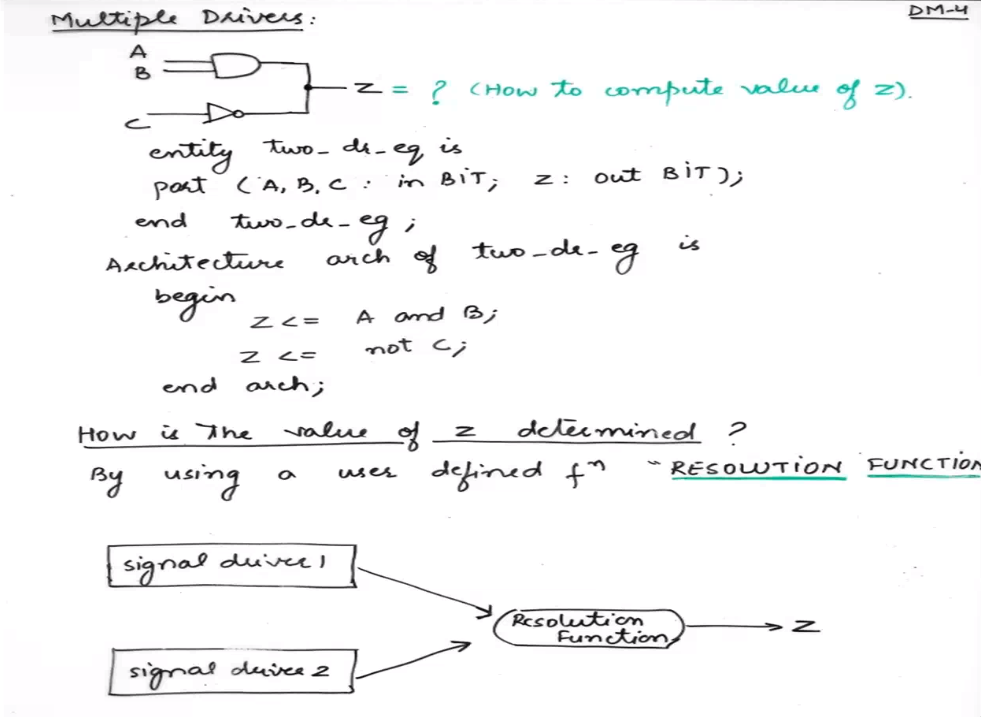 Multiple Drivers:
DM-4
A
B
C
Z = ? (How to compute value of Z).
entity two_dr_eg is
port (A, B, C : in BIT; Z : out BIT);
end two_dr_eg;
Architecture arch of two_dr_eg is
begin
Z <= A and B;
Z <= not C;
end arch;
How is the value of Z determined ?
By using a user defined fⁿ "RESOLUTION FUNCTION
signal driver 1
Resolution
Function
Z
signal driver 2